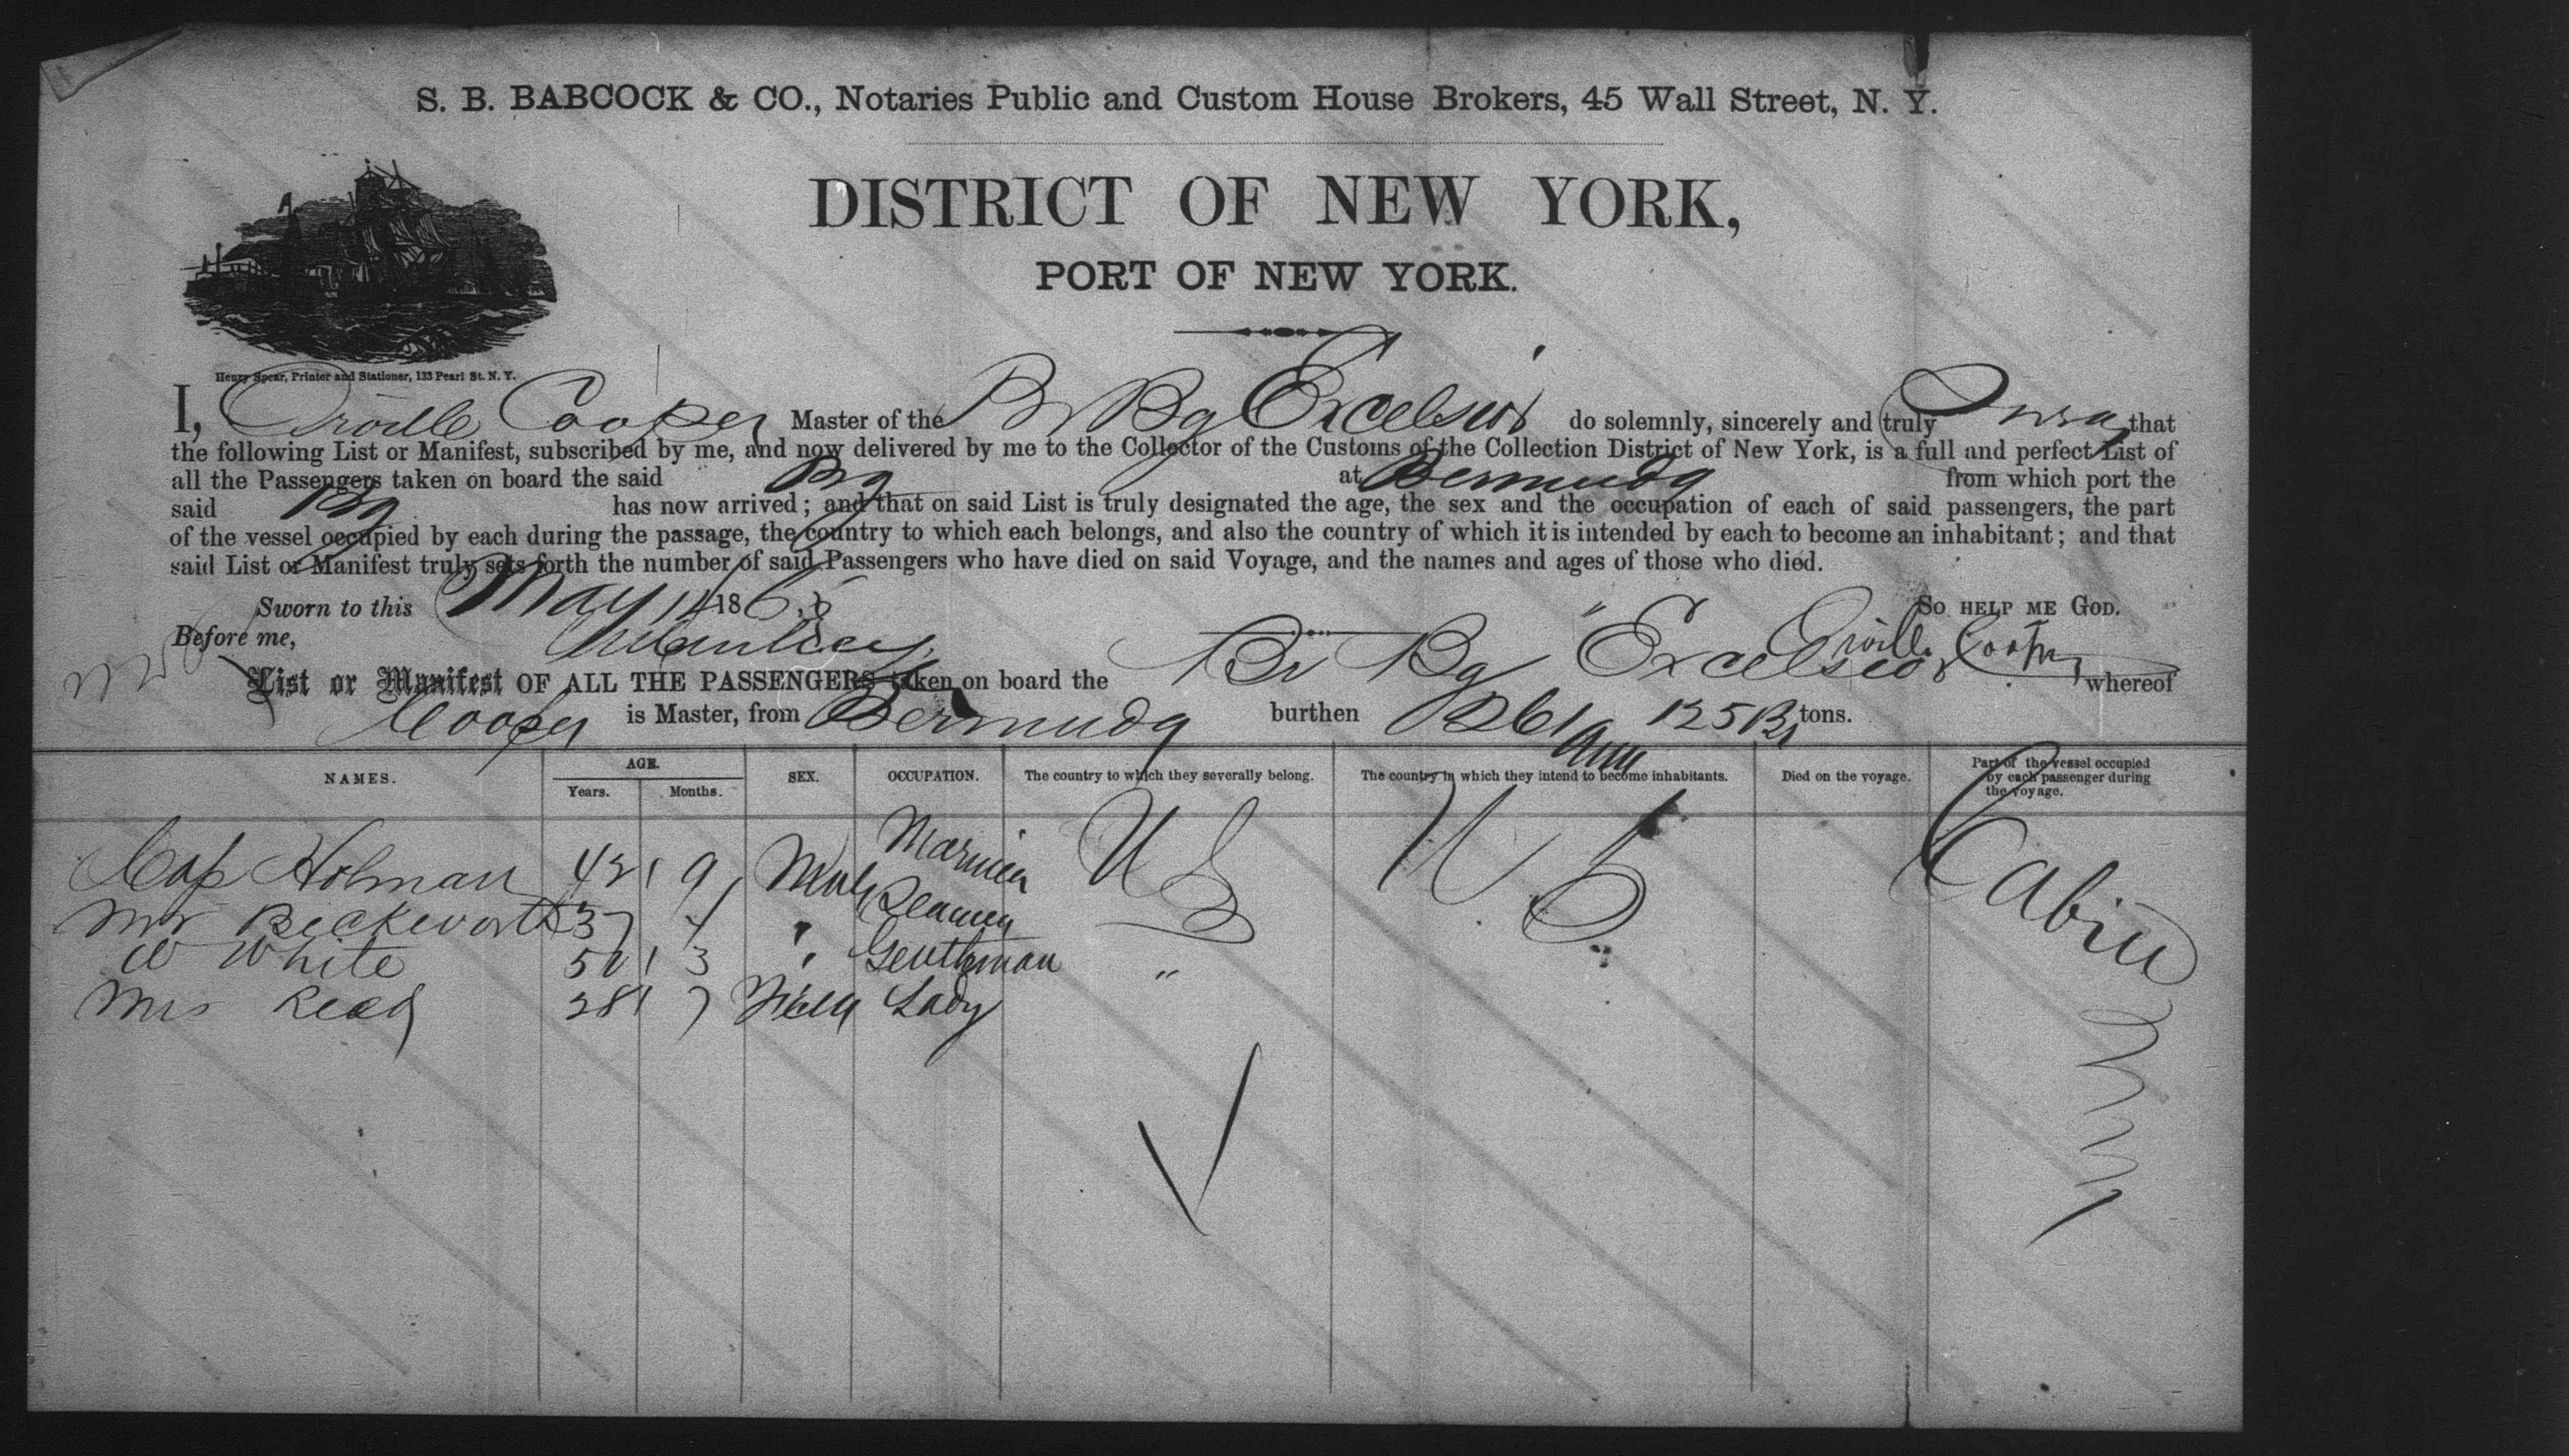 S. B. BABCOCK & CO., Notaries Public and Custom House Brokers, 45 Wall Street, N. Y.
DISTRICT OF NEW YORK,
PORT OF NEW YORK.
Henry Spear, Printer and Stationer, 133 Pearl St. N. Y.
I, Orville Cooper Master of the Br Bg Excelsior do solemnly, sincerely and truly that
the following List or Manifest, subscribed by me, and now delivered by me to the Collector of the Customs of the Collection District of New York, is a full and perfect List of
all the Passengers taken on board the said Brg at Bermuda from which port the
said Brg has now arrived; and that on said List is truly designated the age, the sex and the occupation of each of said passengers, the part
of the vessel occupied by each during the passage, the country to which each belongs, and also the country of which it is intended by each to become an inhabitant; and that
said List or Manifest truly sets forth the number of said Passengers who have died on said Voyage, and the names and ages of those who died.
Sworn to this May 186 SO HELP ME GOD.
Before me, Orville Cooper
List or Manifest OF ALL THE PASSENGERS taken on board the Br Bg "Excelsior whereof
Cooper is Master, from Bermuda burthen 125 tons.
NAMES. AGE. Years. Months. SEX. OCCUPATION. The country to which they severally belong. The country in which they intend to become inhabitants. Died on the voyage. Part of the vessel occupied by each passenger during the voyage.
Cap Holman 42 9 Male Mariner U S U S Cabin
Mr Beckworth 37 4 " Seaman
W White 50 3 " Gentleman "
Mrs Read 28 7 Fem Lady